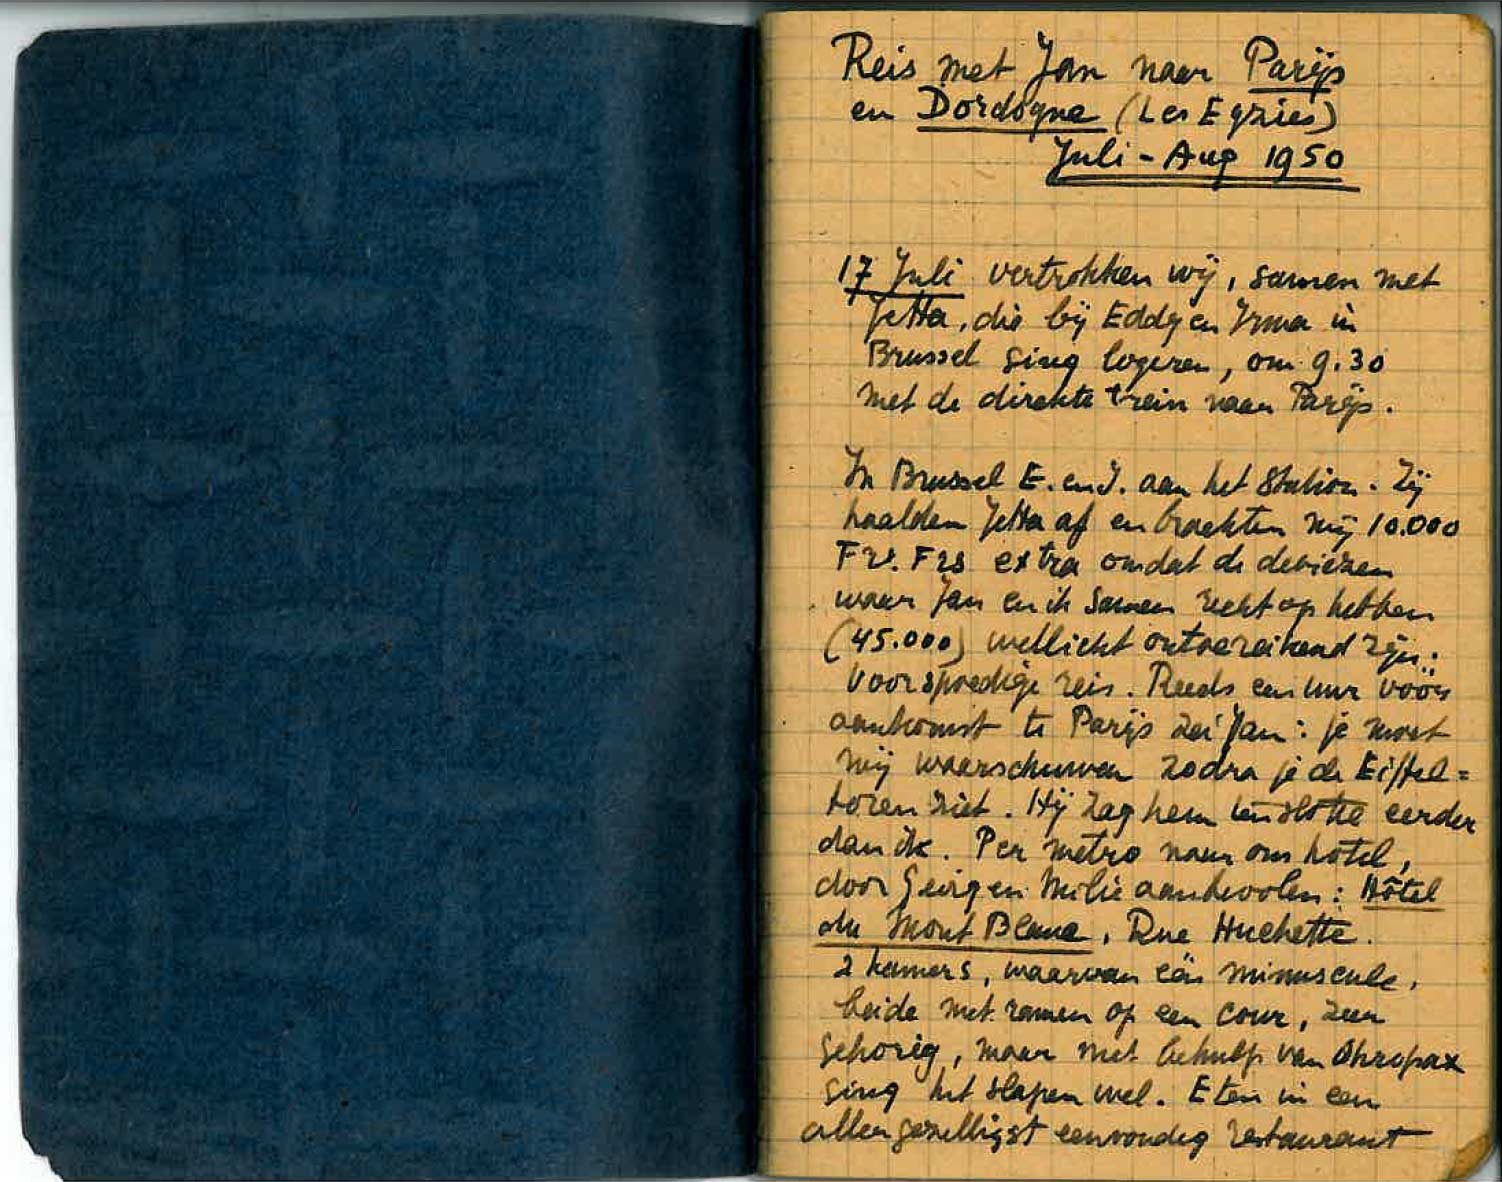 Reis met Jan naar Parijs
en Dordogne (Les Eyzies)
Juli - Aug 1950
17 Juli vertrokken wij, samen met
Jetta, die bij Eddy en Irma in
Brussel ging logeren, om 9.30
met de direkte trein naar Parijs.
In Brussel E. en I. aan het Station. Zij
haalden Jetta af en brachten mij 10.000
Fr. Frs extra omdat de deviezen
waar Jan en ik samen recht op hebben
(45.000) wellicht ontoereikend zijn.
Voorspoedige reis. Reeds een uur vóór
aankomst te Parijs zei Jan: je moet
mij waarschuwen zodra je de Eiffel=
toren ziet. Hij zag hem tenslotte eerder
dan ik. Per metro naar ons hotel,
door en aanbevolen: Hôtel
du Mont Blanc, Rue Huchette.
2 kamers, waarvan één minuscule,
beide met ramen op een cour, zeer
gehorig, maar met behulp van Ohropax
ging het slapen wel. Eten in een
allergezelligst eenvoudig restaurant